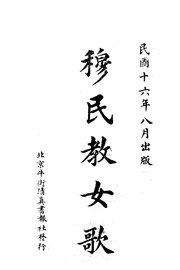 民國十六年八月出版
穆民教女歌
北京牛街清真書報社發行